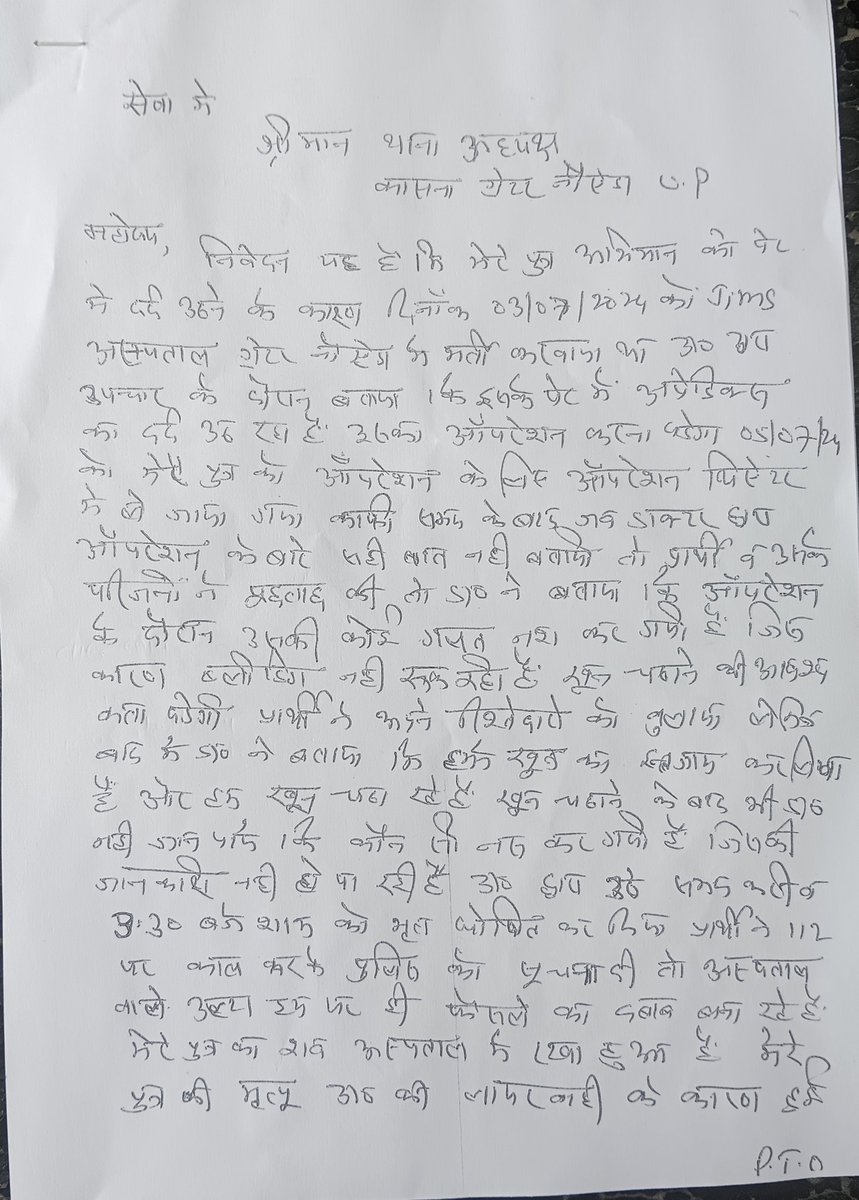 सेवा मे
श्री मान थाना अध्यक्ष
कासना ग्रेटर नौएडा U.P
महोदय,
निवेदन यह है कि मेरे पुत्र अभिमान को पेट
मे दर्द उठने के कारण दिनाँक 03/07/2024 को Jims
अस्पताल ग्रेटर नोएडा मे भर्ती करवाया था डा० द्वारा
उपचार के दौरान बताया कि इसके पेट में अपेंडिक्स
का दर्द उठ रहा है उसका ऑपरेशन करना पडेगा 05/07/24
को मेरे पुत्र को ऑपरेशन के लिए ऑपरेशन थिऐटर
मे ले जाया गया काफी समय के बाद जब डाक्टर द्वारा
ऑपरेशन के बारे सही बात नही बतायी तो प्रार्थी व उसके
परिजनों ने पूछताछ की तो डा० ने बताया कि ऑपरेशन
के दौरान उसकी कोई गलत नश कट गयी है जिस
कारण ब्लीडिंग नही रूक रही है खून चढाने की आवश्य
कता पडेगी प्रार्थी ने अपने रिश्तेदारो को बुलाया लेकिन
बाद मे डा० ने बताया कि हमने खून का इन्तजाम कर लिया
है और हम खून चढा रहे है खून चढाने के बाद भी डा०
नही जान पाये कि कौन सी नस कट गयी है जिसकी
जानकारी नही हो पा रही है डा० द्वारा समय करीब
3:30 बजे शाम को मृत घोषित कर दिया प्रार्थी ने 112
पर काल करके पुलिस को सूचना दी तो अस्पताल
वाले उल्टा हम पर ही फैसले का दबाब बना रहे है
मेरे पुत्र का शव अस्पताल मे रखा हुआ है मेरे
पुत्र की मृत्यू डा० की लापरवाही के कारण हुई
P.T.O